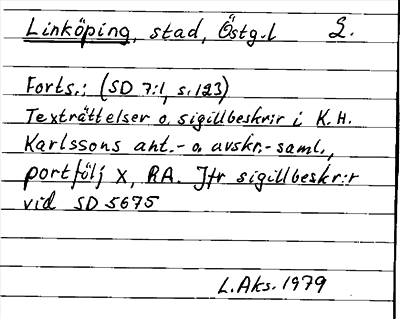 Linköping, stad, Östg.l 2.
Forts.: (SD 7:1, s. 123)
Texträttelser o. sigillbeskr:r i K.H.
Karlssons ant.- o. avskr.- saml.,
portfölj X, RA. Jfr sigillbeskr:r
vid SD 5675
L.Aks. 1979